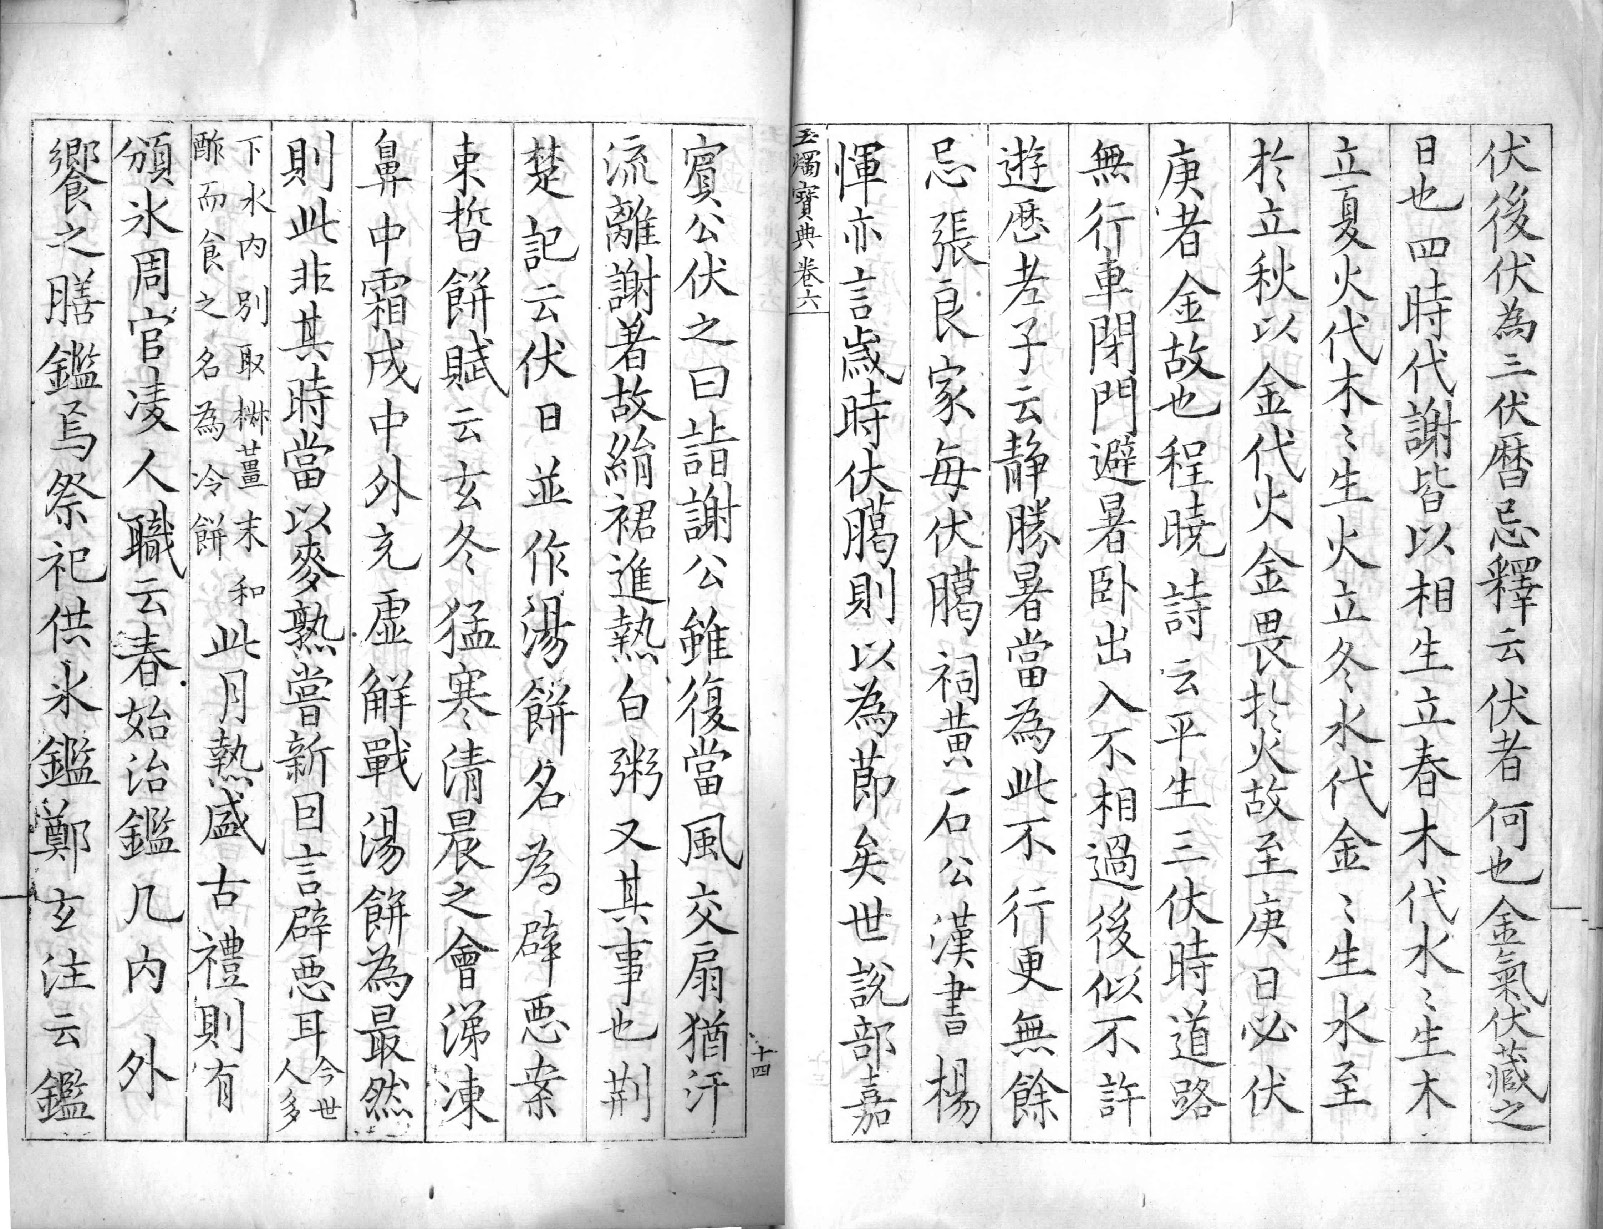 伏後伏為三伏曆忌釋云伏者何也金氣伏藏之
日也四時代謝皆以相生立春木代水〻生木
立夏火代木〻生火立冬水代金〻生水至
於立秋以金代火金畏於火故至庚日必伏
庚者金故也程曉詩云平生三伏時道路
無行車閉門避暑卧出入不相過後似不許
遊歷老子云静勝暑當為此不行更無餘
忌張良家每伏臈祠黃石公漢書楊
惲亦言歳時伏臈則以為莭矣世說部嘉
玉燭寶典卷六
十四
賔公伏之曰詣謝公雖復當風交扇猶汗
流離謝著故絹裙進熱白粥又其事也荆
楚記云伏日並作湯餅名為辟悪案
束晳餅賦云玄冬猛寒清晨之會涕凍
鼻中霜成中外充虚解戰湯餅為最然
則此非其時當以麥熟嘗新曰言辟悪耳今世人多
下水内別取椒薑末和酢而食之名為冷餅此月熱盛古禮則有
頒氷周官凌人職云春始治鑑凡内外
饔之膳鑑焉祭祀供氷鑑鄭玄注云鑑